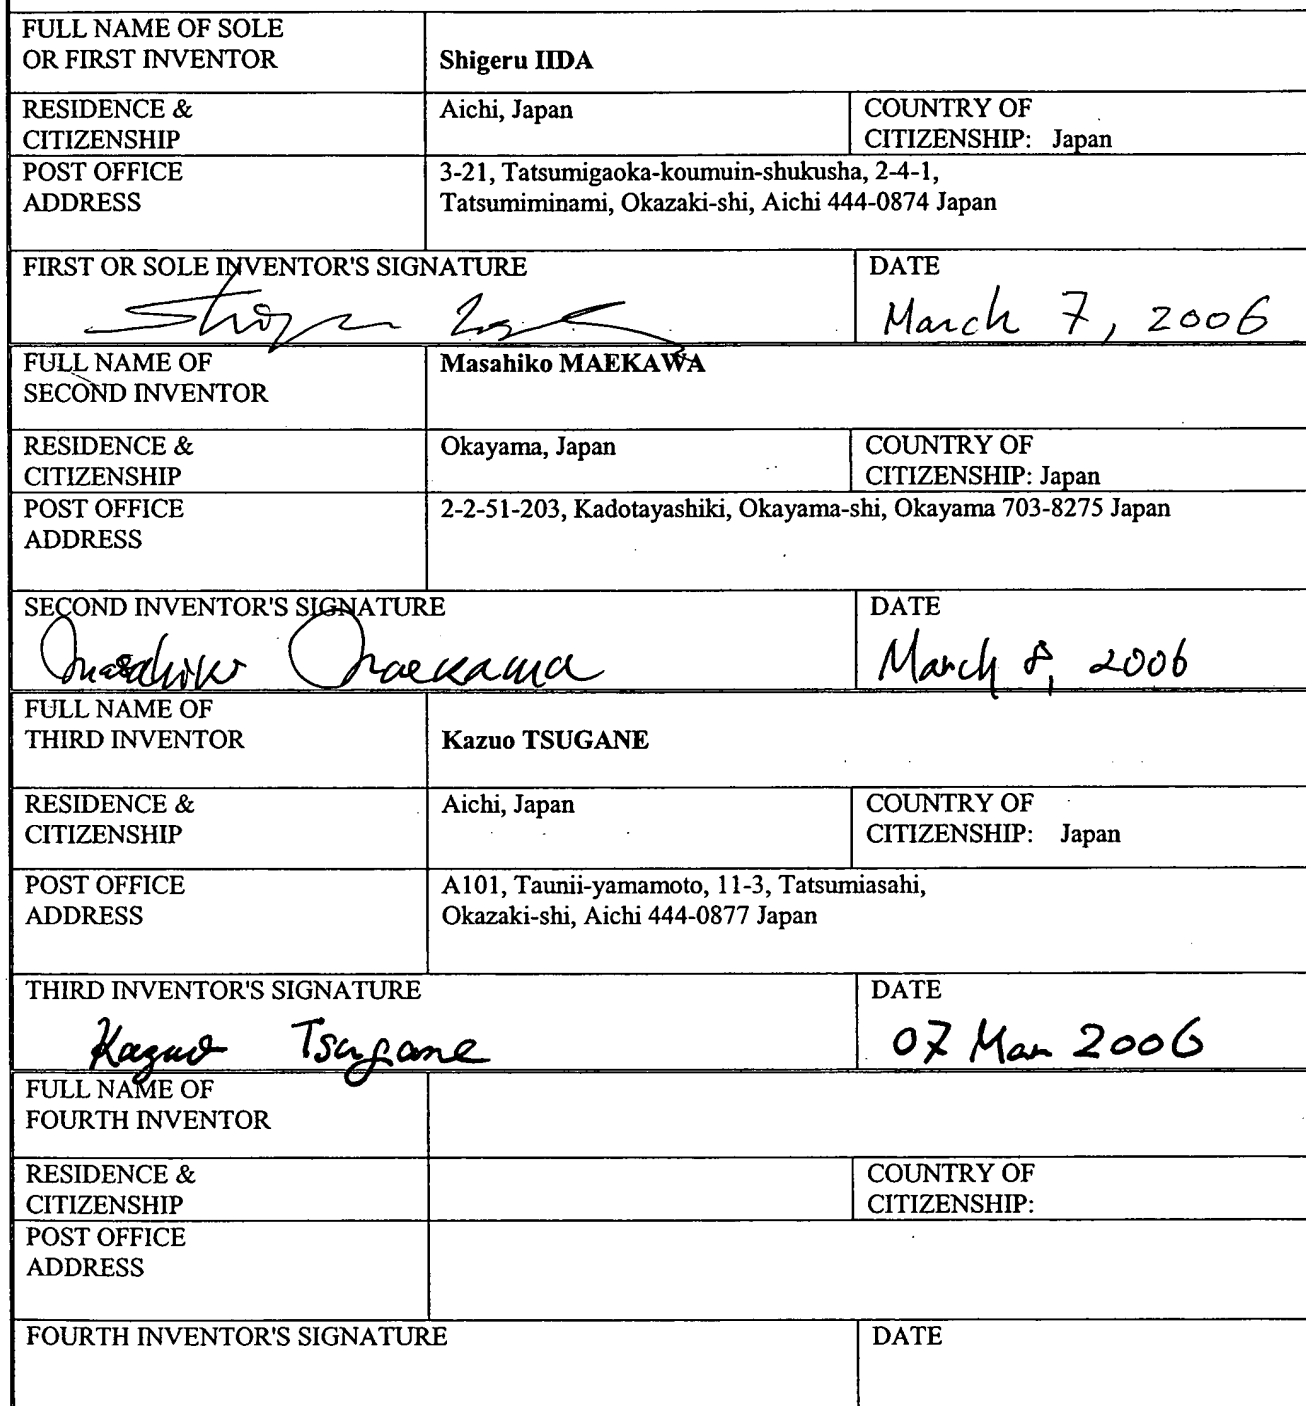 FULL NAME OF SOLE
OR FIRST INVENTOR
Shigeru IIDA
RESIDENCE &
CITIZENSHIP
Aichi, Japan
COUNTRY OF
CITIZENSHIP: Japan
POST OFFICE
ADDRESS
3-21, Tatsumigaoka-koumuin-shukusha, 2-4-1,
Tatsumiminami, Okazaki-shi, Aichi 444-0874 Japan
FIRST OR SOLE INVENTOR'S SIGNATURE
DATE
March 7, 2006
FULL NAME OF
SECOND INVENTOR
Masahiko MAEKAWA
RESIDENCE &
CITIZENSHIP
Okayama, Japan
COUNTRY OF
CITIZENSHIP: Japan
POST OFFICE
ADDRESS
2-2-51-203, Kadotayashiki, Okayama-shi, Okayama 703-8275 Japan
SECOND INVENTOR'S SIGNATURE
Masahiko Maekawa
DATE
March 8, 2006
FULL NAME OF
THIRD INVENTOR
Kazuo TSUGANE
RESIDENCE &
CITIZENSHIP
Aichi, Japan
COUNTRY OF
CITIZENSHIP: Japan
POST OFFICE
ADDRESS
A101, Taunii-yamamoto, 11-3, Tatsumiasahi,
Okazaki-shi, Aichi 444-0877 Japan
THIRD INVENTOR'S SIGNATURE
Kazuo Tsugane
DATE
07 Mar 2006
FULL NAME OF
FOURTH INVENTOR
RESIDENCE &
CITIZENSHIP
COUNTRY OF
CITIZENSHIP:
POST OFFICE
ADDRESS
FOURTH INVENTOR'S SIGNATURE
DATE